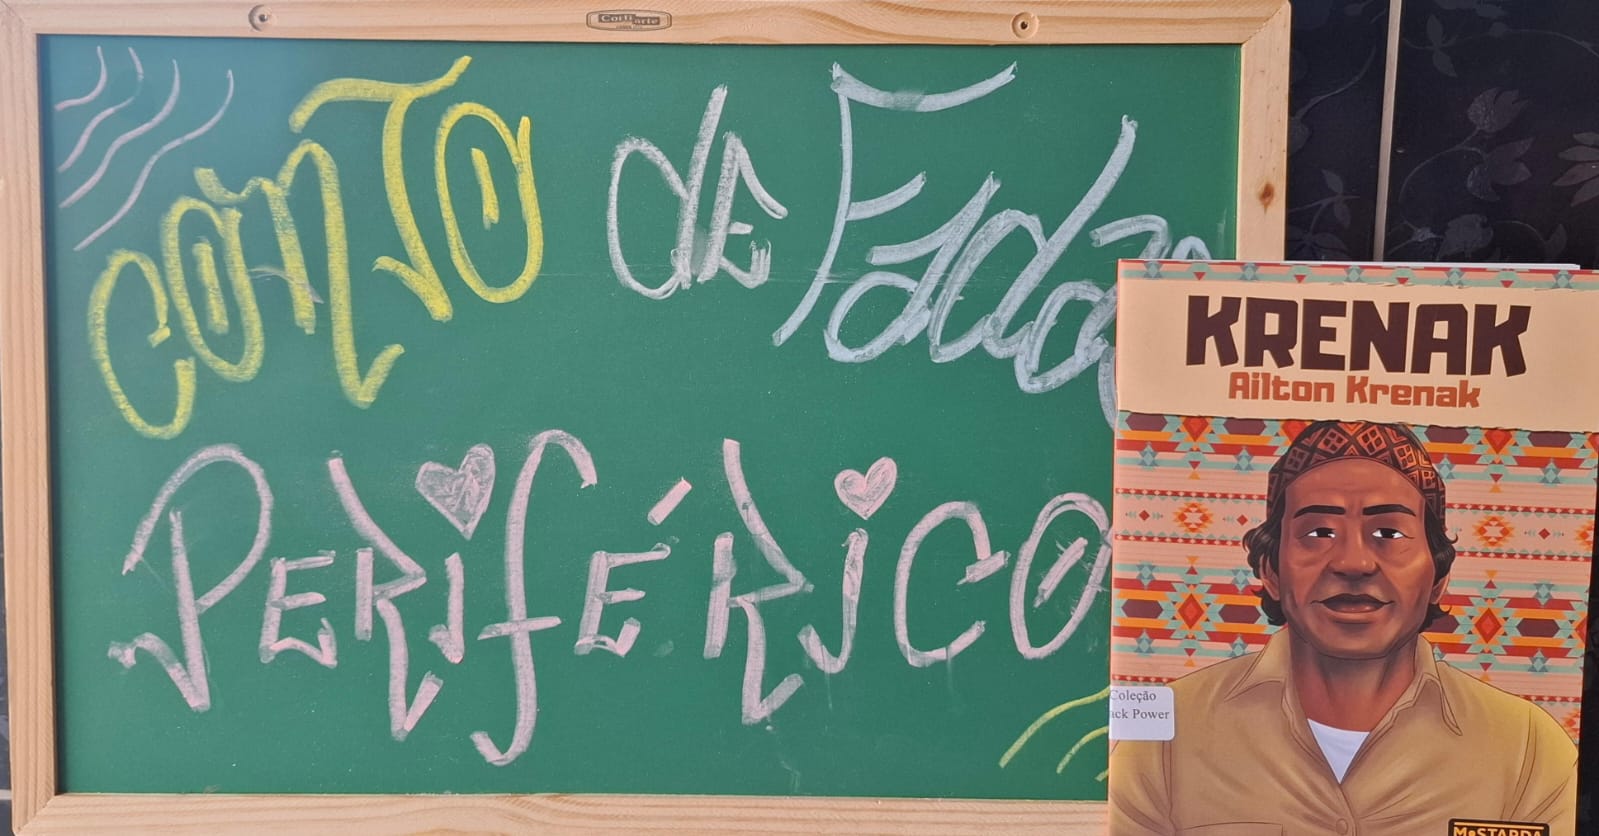 CONTO de Fadas
PERIFÉRICO
KRENAK
Ailton Krenak
Coleção
ack Power
MOSTARDA